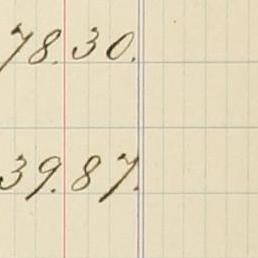 78.30.
39.87.